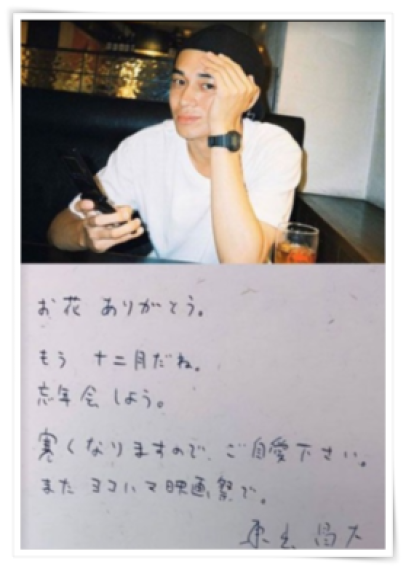 お花 ありがとう。
もう 十二月だね。
忘年会 しよう。
寒くなりますので、ご自愛下さい。
また ヨコハマ映画祭で。
東出 昌大